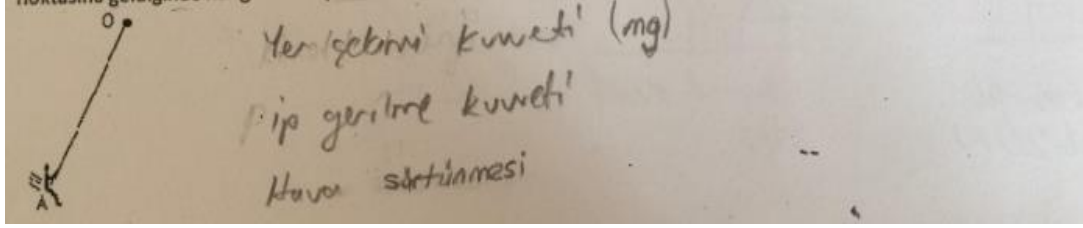 O
Yer çekimi kuvveti (mg)
ip gerilme kuvveti
Hava sürtünmesi
A